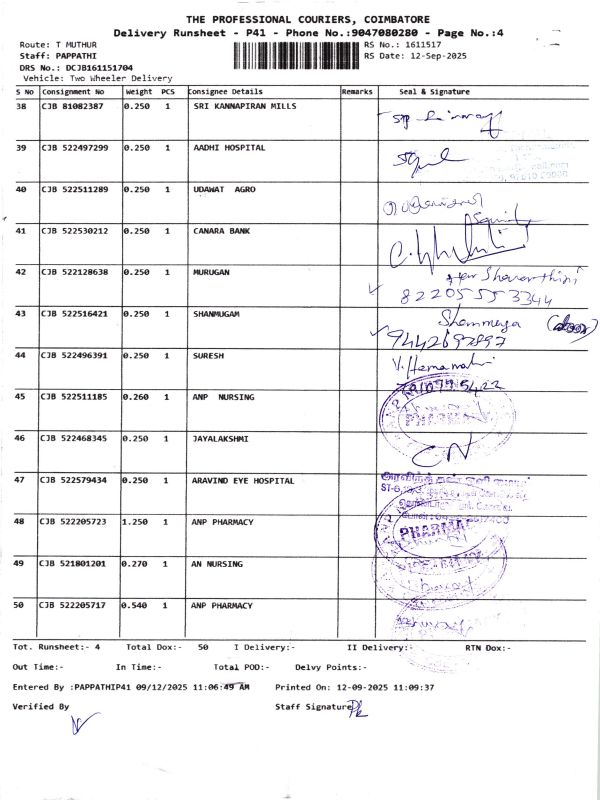 THE PROFESSIONAL COURIERS, COIMBATORE
Delivery Runsheet - P41 - Phone No.:9047080280 - Page No.:4
Route: T MUTHUR RS No.: 1611517
Staff: PAPPATHI RS Date: 12-Sep-2025
DRS No.: DCJB161151704
Vehicle: Two Wheeler Delivery
S No Consignment No Weight PCS Consignee Details Remarks Seal & Signature
38 CJB 81082387 0.250 1 SRI KANNAPIRAN MILLS
39 CJB 522497299 0.250 1 AADHI HOSPITAL
40 CJB 522511289 0.250 1 UDAWAT AGRO
41 CJB 522530212 0.250 1 CANARA BANK
42 CJB 522128638 0.250 1 MURUGAN
82205553344
43 CJB 522516421 0.250 1 SHANMUGAM
9442697897
44 CJB 522496391 0.250 1 SURESH
45 CJB 522511185 0.260 1 ANP NURSING
46 CJB 522468345 0.250 1 JAYALAKSHMI
47 CJB 522579434 0.250 1 ARAVIND EYE HOSPITAL
48 CJB 522205723 1.250 1 ANP PHARMACY
49 CJB 521801201 0.270 1 AN NURSING
50 CJB 522205717 0.540 1 ANP PHARMACY
Tot. Runsheet:- 4 Total Dox:- 50 I Delivery:- II Delivery:- RTN Dox:-
Out Time:- In Time:- Total POD:- Delvy Points:-
Entered By :PAPPATHIP41 09/12/2025 11:06:49 AM Printed On: 12-09-2025 11:09:37
Verified By Staff Signature